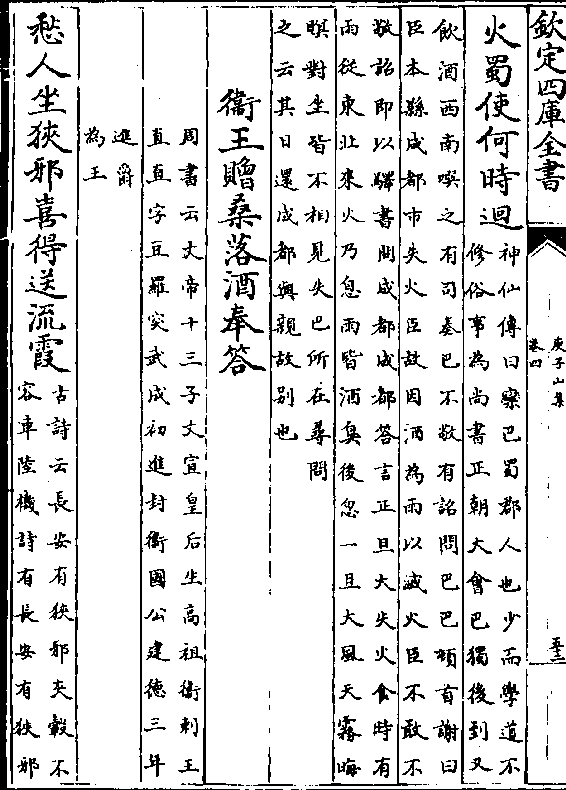 欽定四庫全書
庾子山集
卷四
五十二
火蜀使何時迴
神仙傳曰欒巴蜀郡人也少而學道不
修俗事為尚書正朝大會巴獨後到又
飲酒西南噀之有司奏巴不敬有詔問巴巴頓首謝曰
臣本縣成都市失火臣故因酒為雨以滅火臣不敢不
敬詔即以驛書問成都成都答言正旦大失火食時有
雨從東北來火乃息雨皆酒臭後忽一旦大風天霧晦
暝對坐皆不相見失巴所在尋問
之云其日還成都與親故别也
衞王贈桑落酒奉答
周書云文帝十三子文宣皇后生高祖衞剌王
直直字豆羅突武成初進封衞國公建德三年
進爵
為王
愁人坐狹邪喜得送流霞
古詩云長安有狹邪夾轂不
容車陸機詩有長安有狹邪